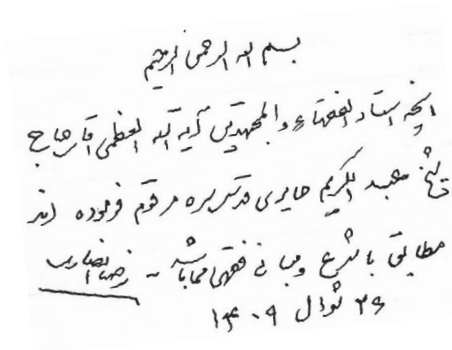 بسم الله الرحمن الرحیم
آنچه استاد الفقهاء والمجتهدین آیة الله العظمی آقای حاج
شیخ عبد الکریم حایری قدس سره مرقوم فرموده اند
مطابق با شرع و مبانی فقهی میباشد -
۲۶ شوال ۱۴۰۹